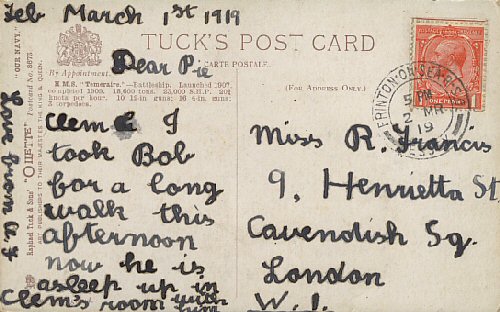 Feb March 1st 1919
TUCK'S POST CARD
CARTE POSTALE.
By Appointment.
(FOR ADDRESS ONLY.)
H.M.S. "Temeraire."—Battleship. Launched "07,"
completed 1909. 18,600 tons. 23,000 S.H.P. 20½
knots per hour. 10 12-in. guns; 16 4-in. guns;
torpedoes.
"OUR NAVY."
Postcard No. 8673
Raphael Tuck & Sons' "OILETTE"
ART PUBLISHERS TO THEIR MAJESTIES THE KING & QUEEN.
Dear Pie
Clem & I
took Bob
for a long
walk this
afternoon
now he is
asleep up in
Clem's room with him
Love from
Miss R. Francis
9, Henrietta St
Cavendish Sq.
London
W.1.
FRINTON-ON-SEA
5 PM
2 MR
19
ONE PENNY